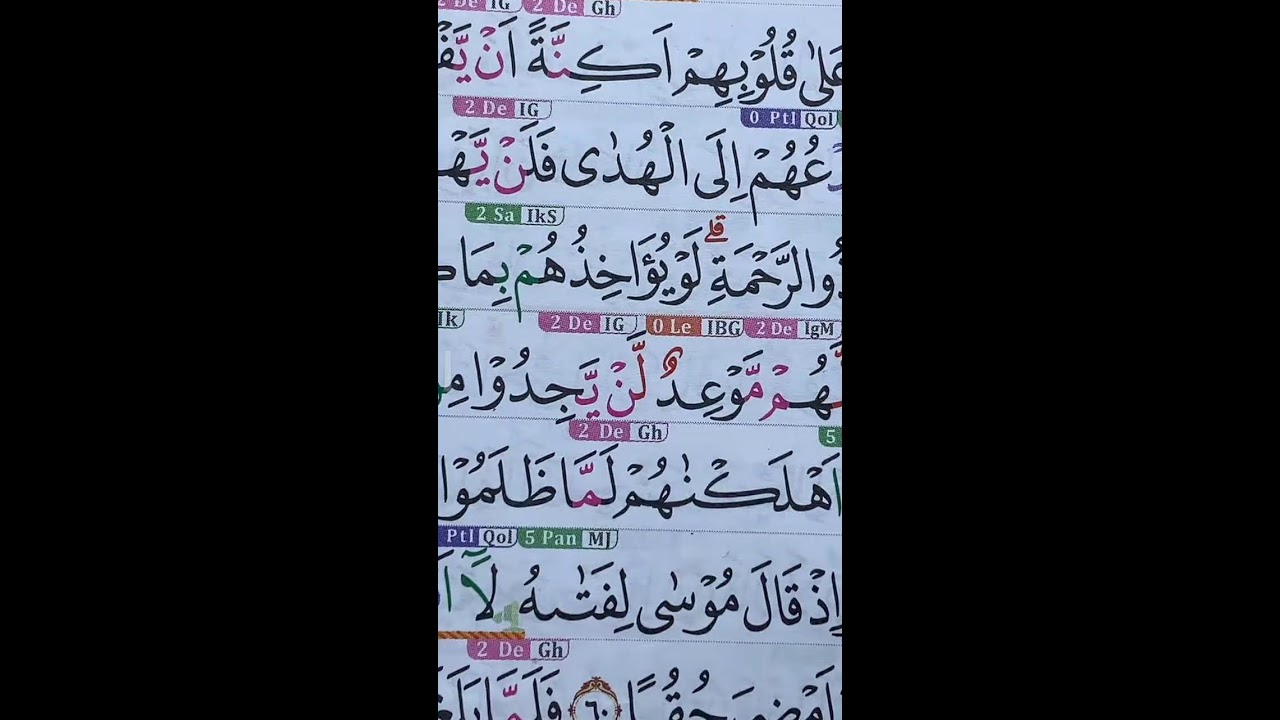 2 De IG 2 De Gh
عَلٰى قُلُوْبِهِمْ اَكِنَّةً اَنْ يَّفْ
2 De IG 0 Ptl Qol
عُهُمْ اِلَى الْهُدٰى فَلَنْ يَّهْ
2 Sa IkS
ذُو الرَّحْمَةِ ۗ لَوْ يُؤَاخِذُهُمْ بِمَا
Ik 2 De IG 0 Le IBG 2 De IgM
لَّهُمْ مَّوْعِدٌ لَّنْ يَّجِدُوْا مِ
2 De Gh 5
اَهْلَكْنٰهُمْ لَمَّا ظَلَمُوْا
Ptl Qol 5 Pan MJ
اِذْ قَالَ مُوْسٰى لِفَتٰىهُ لَآ اَ
2 De Gh
اَمْضِيَ حُقُبًا ٦٠ فَلَمَّا بَلَغَ